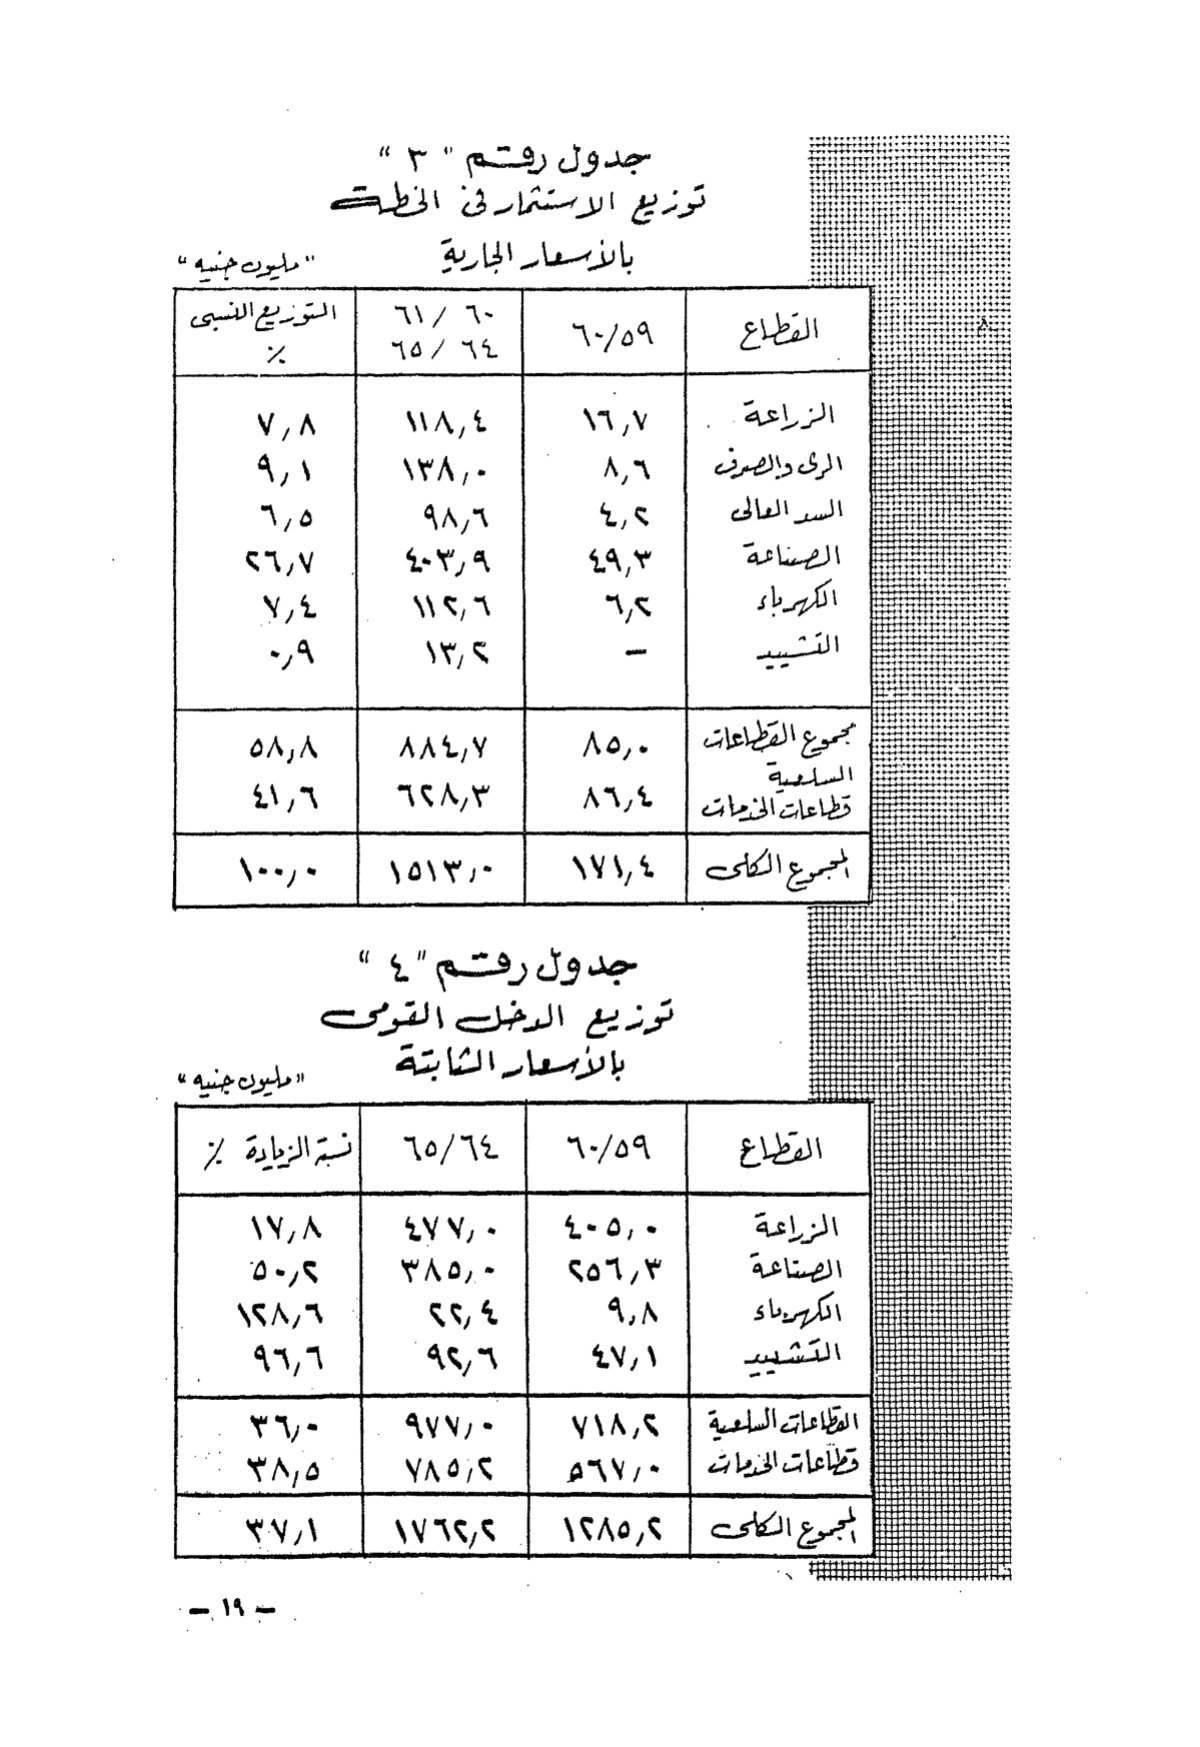 جدول رقم "٣"
توزيع الاستثمار فى الخطة
بالأسعار الجارية
"مليون جنيه"
القطاع ٦٠/٥٩ ٦١/٦٠ ٦٥/٦٤ التوزيع النسبى %
الزراعة ١٦,٧ ١١٨,٤ ٧,٨
الرى والصرف ٨,٦ ١٣٨,٠ ٩,١
السد العالى ٤,٢ ٩٨,٦ ٦,٥
الصناعة ٤٩,٣ ٤٠٣,٩ ٢٦,٧
الكهرباء ٦,٢ ١١٢,٦ ٧,٤
التشييد — ١٣,٢ ٠,٩
مجموع القطاعات السلعية ٨٥,٠ ٨٨٤,٧ ٥٨,٨
قطاعات الخدمات ٨٦,٤ ٦٢٨,٣ ٤١,٦
المجموع الكلى ١٧١,٤ ١٥١٣,٠ ١٠٠,٠
جدول رقم "٤"
توزيع الدخل القومى
بالأسعار الثابتة
"مليون جنيه"
القطاع ٦٠/٥٩ ٦٥/٦٤ نسبة الزيادة %
الزراعة ٤٠٥,٠ ٤٧٧,٠ ١٧,٨
الصناعة ٢٥٦,٣ ٣٨٥,٠ ٥٠,٢
الكهرباء ٩,٨ ٢٢,٤ ١٢٨,٦
التشييد ٤٧,١ ٩٢,٦ ٩٦,٦
القطاعات السلعية ٧١٨,٢ ٩٧٧,٠ ٣٦,٠
قطاعات الخدمات ٥٦٧,٠ ٧٨٥,٢ ٣٨,٥
المجموع الكلى ١٢٨٥,٢ ١٧٦٢,٢ ٣٧,١
— ١٩ —